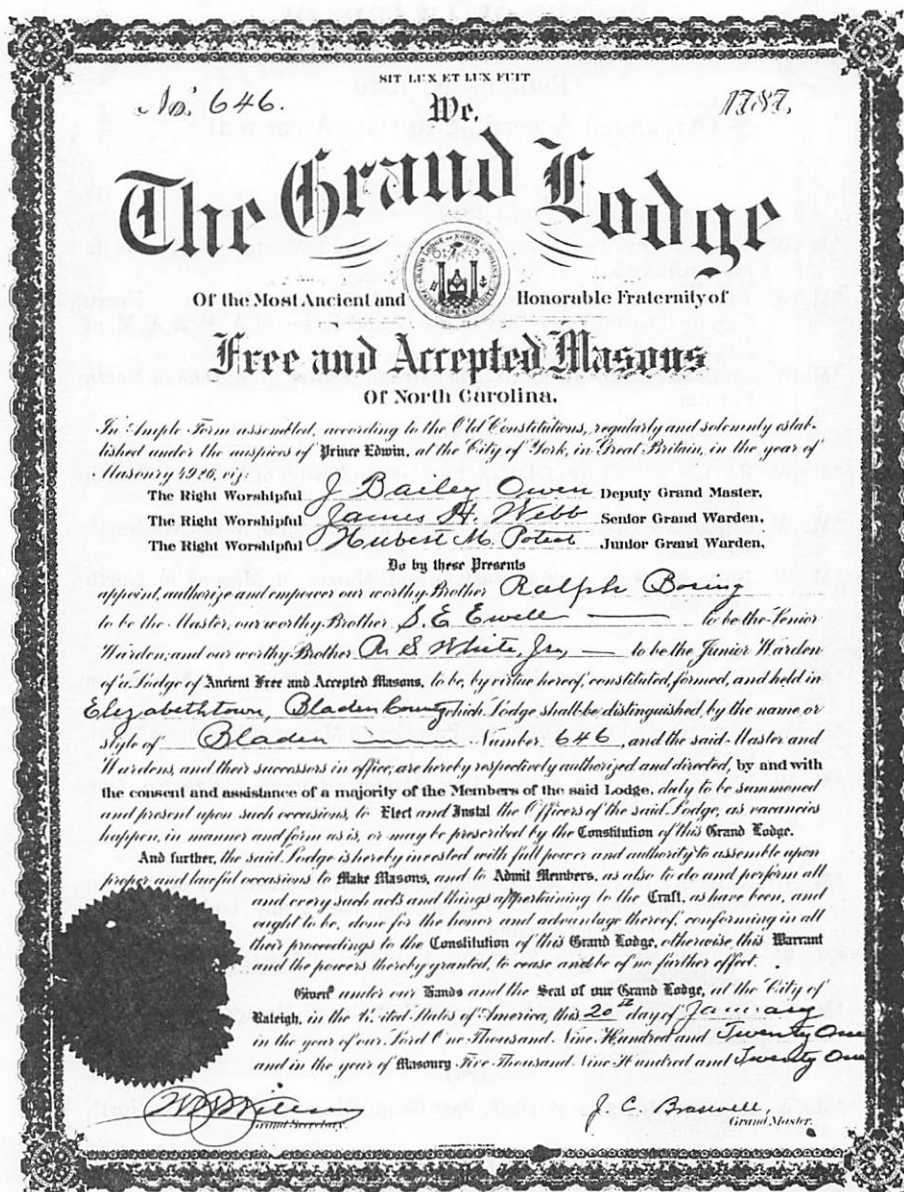 SIT LUX ET LUX FUIT
No. 646.
1787.
We,
The Grand Lodge
GRAND LODGE OF NORTH CAROLINA
HOPE & CHARITY
Of the Most Ancient and Honorable Fraternity of
Free and Accepted Masons
Of North Carolina.
In Ample Form assembled, according to the Old Constitutions, regularly and solemnly estab-
lished under the auspices of Prince Edwin, at the City of York, in Great Britain, in the year of
Masonry 4926, viz
The Right Worshipful J Bailey Owen Deputy Grand Master.
The Right Worshipful James H. Webb Senior Grand Warden.
The Right Worshipful Hubert M. Poteat Junior Grand Warden.
Do by these Presents
appoint, authorize and empower our worthy Brother Ralph
to be the Master, our worthy Brother S. E Ewell to be the Senior
Warden; and our worthy Brother R S White, Jr, to be the Junior Warden
of a Lodge of Ancient Free and Accepted Masons, to be, by virtue hereof, constituted, formed, and held in
Elizabethtown, Bladen County which Lodge shall be distinguished by the name or
style of Bladen Number 646, and the said Master and
Wardens, and their successors in office, are hereby respectively authorized and directed, by and with
the consent and assistance of a majority of the Members of the said Lodge, duly to be summoned
and present upon such occasions, to Elect and Instal the Officers of the said Lodge, as vacancies
happen, in manner and form as is, or may be prescribed by the Constitution of this Grand Lodge.
And further, the said Lodge is hereby invested with full power and authority to assemble upon
proper and lawful occasions to Make Masons, and to Admit Members, as also to do and perform all
and every such acts and things appertaining to the Craft, as have been, and
ought to be, done for the honor and advantage thereof, conforming in all
their proceedings to the Constitution of this Grand Lodge, otherwise this Warrant
and the powers thereby granted, to cease and be of no further effect.
Given under our Hands and the Seal of our Grand Lodge, at the City of
Raleigh, in the United States of America, this 20th day of January
in the year of our Lord One Thousand Nine Hundred and Twenty One
and in the year of Masonry Five Thousand Nine Hundred and Twenty One
Grand Secretary.
J. C. Braswell,
Grand Master.